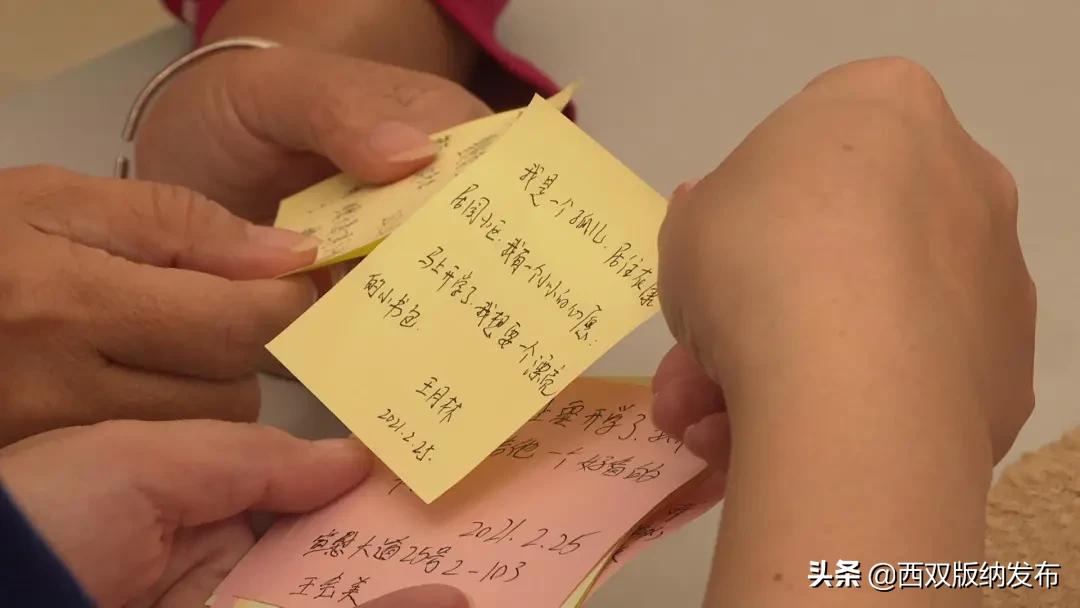 我是一个孤儿,居住在康
居园小区,我有一个小小的心愿:
马上开学了,我想要一个漂亮
的小书包.
王月林
2021.2.25.
上要开学了,
给他一个好看的
2021.2.25
大道25号2-103
王会美
头条 @西双版纳发布